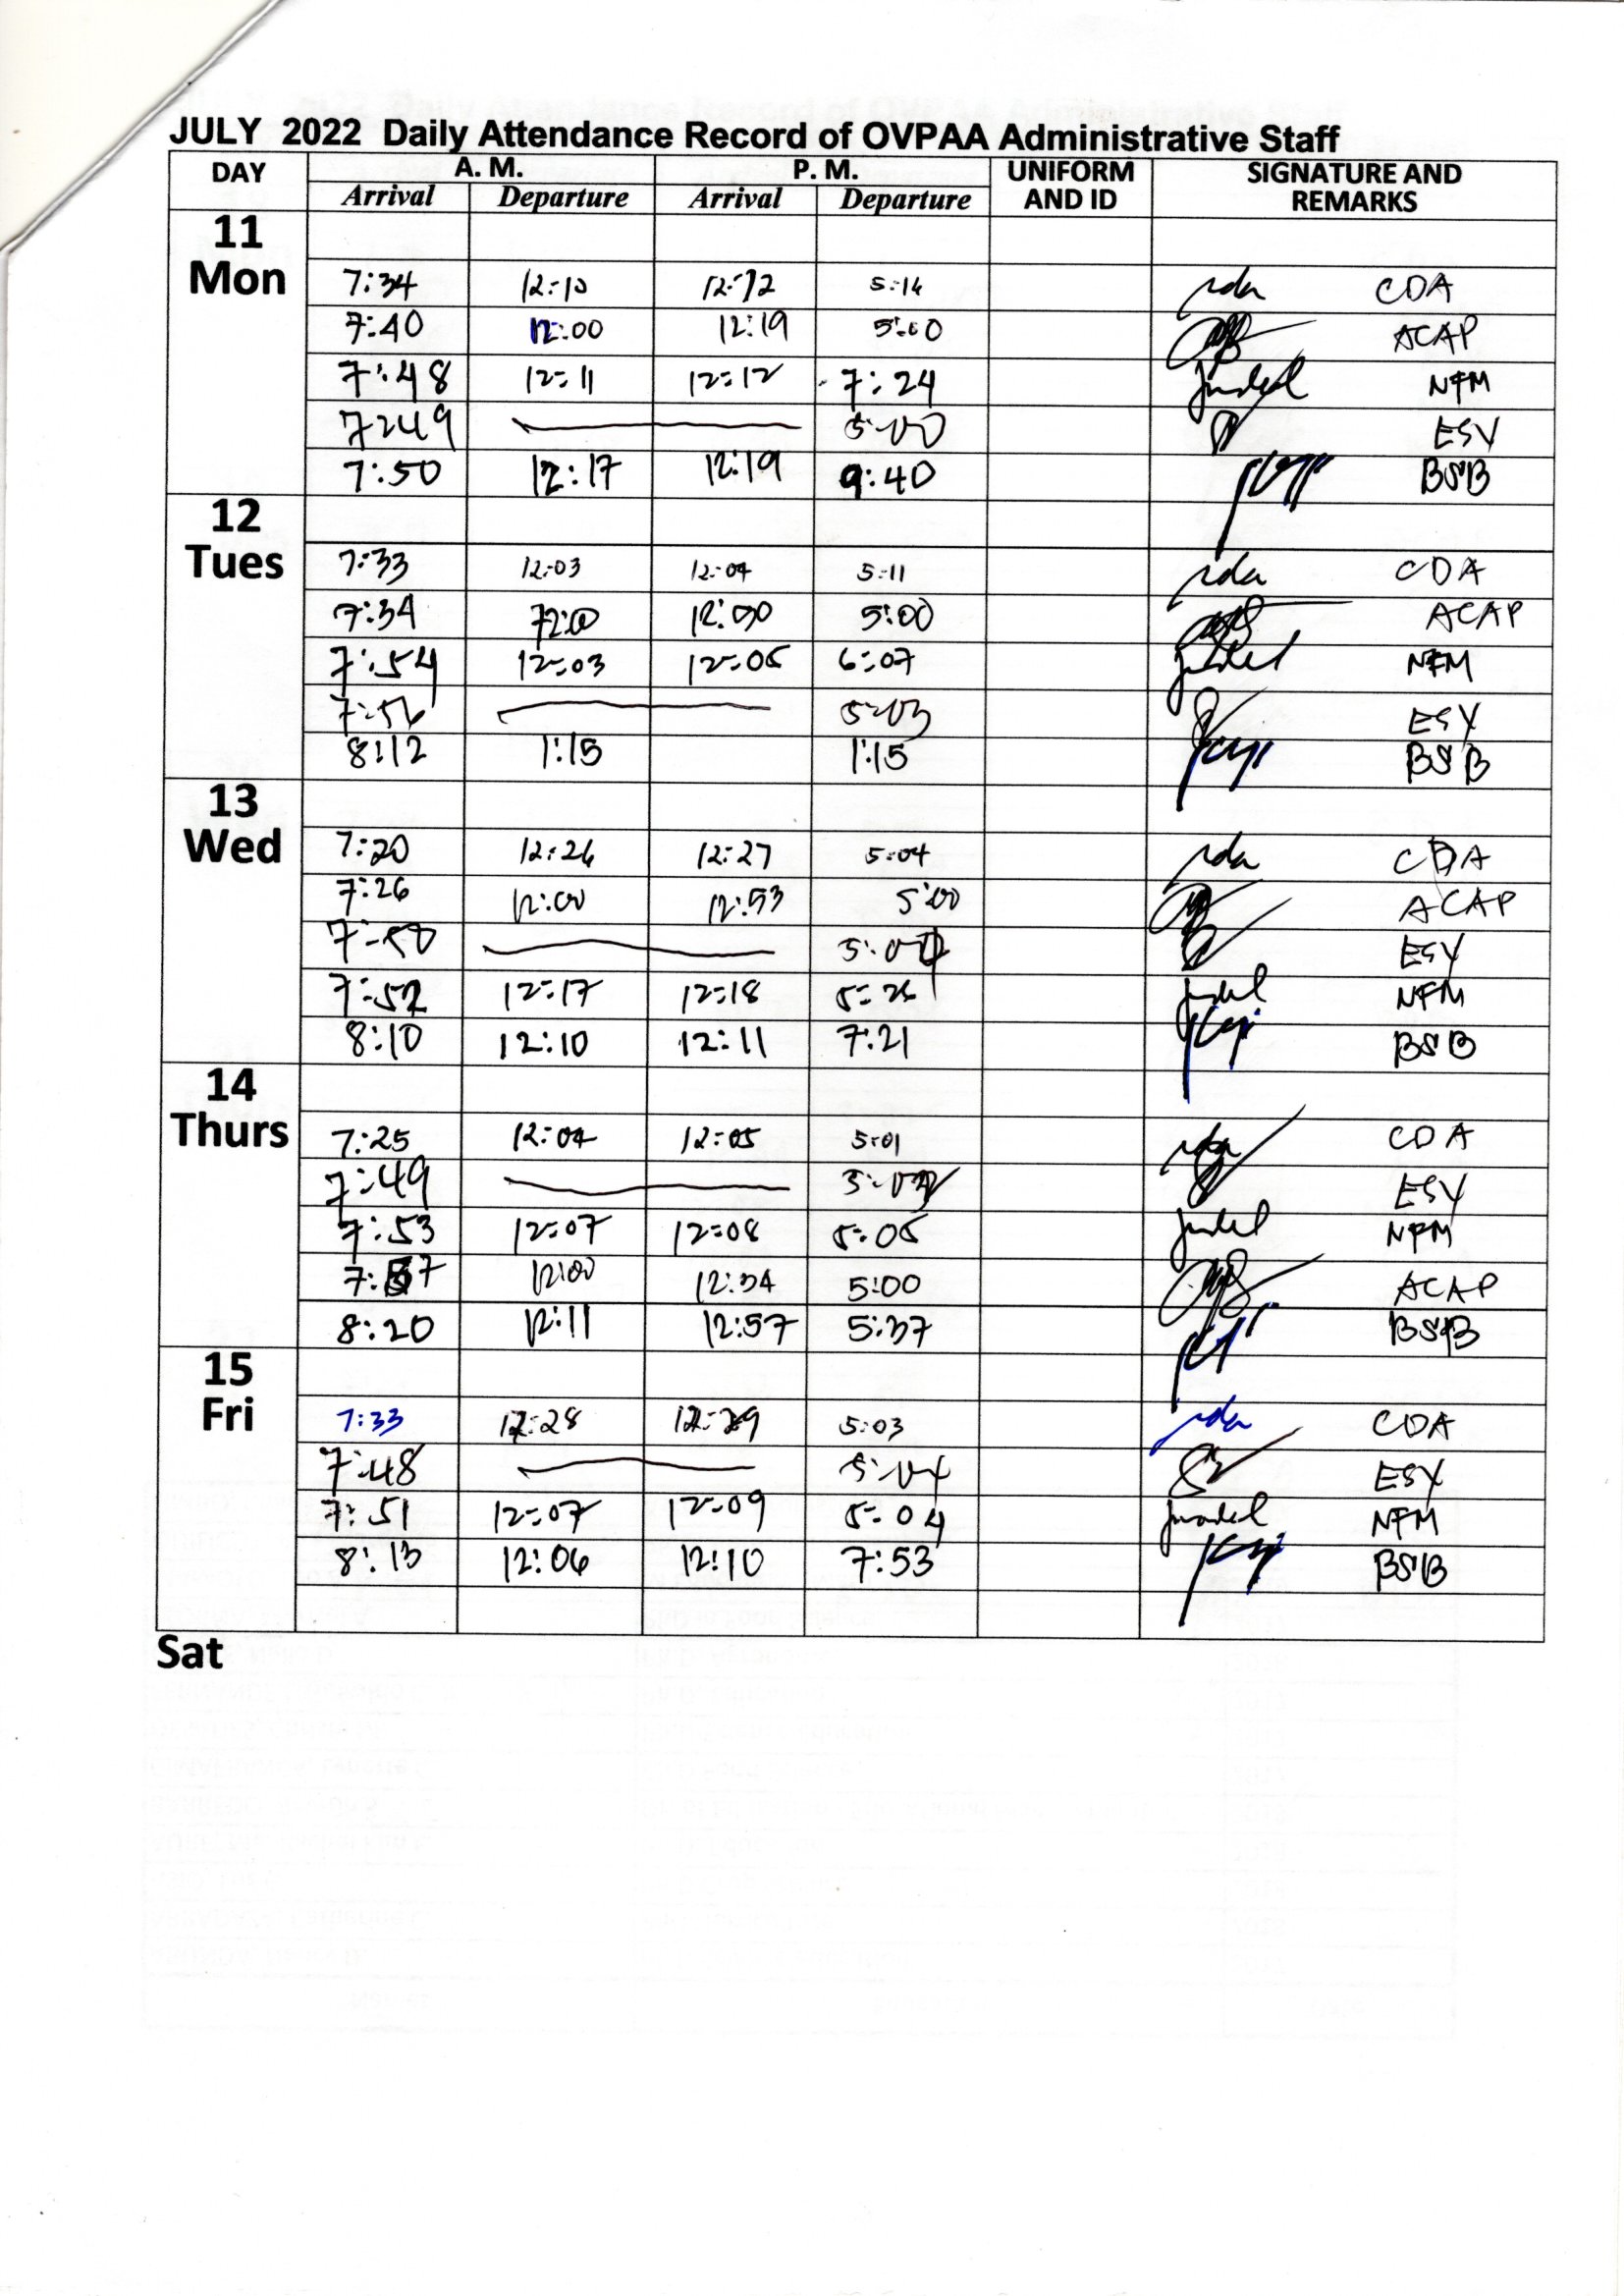 JULY 2022 Daily Attendance Record of OVPAA Administrative Staff
DAY A. M. P. M. UNIFORM AND ID SIGNATURE AND REMARKS
Arrival Departure Arrival Departure
11 Mon
7:34 12:10 12:12 5:14 CDA
7:40 12:00 12:19 5:00 ACAP
7:48 12:11 12:12 7:24 NFM
7:49 5:00 ESY
7:50 12:17 12:19 9:40 BSB
12 Tues
7:33 12:03 12:04 5:11 CDA
7:34 12:00 12:50 5:00 ACAP
7:54 12:03 12:05 6:07 NFM
5:03 ESY
8:12 1:15 1:15 BSB
13 Wed
7:20 12:26 12:27 5:04 CDA
7:26 12:00 12:53 5:00 ACAP
7:50 ESY
7:52 12:17 12:18 5:26 NFM
8:10 12:10 12:11 7:21 BSB
14 Thurs
7:25 12:04 12:05 5:01 CDA
7:49 ESY
7:53 12:07 12:08 5:05 NFM
7:57 12:00 12:54 5:00 ACAP
8:20 12:11 12:57 5:37 BSB
15 Fri
7:33 12:28 12:29 5:03 CDA
7:48 5:04 ESY
7:51 12:07 12:09 5:04 NFM
8:13 12:06 12:10 7:53 BSB
Sat